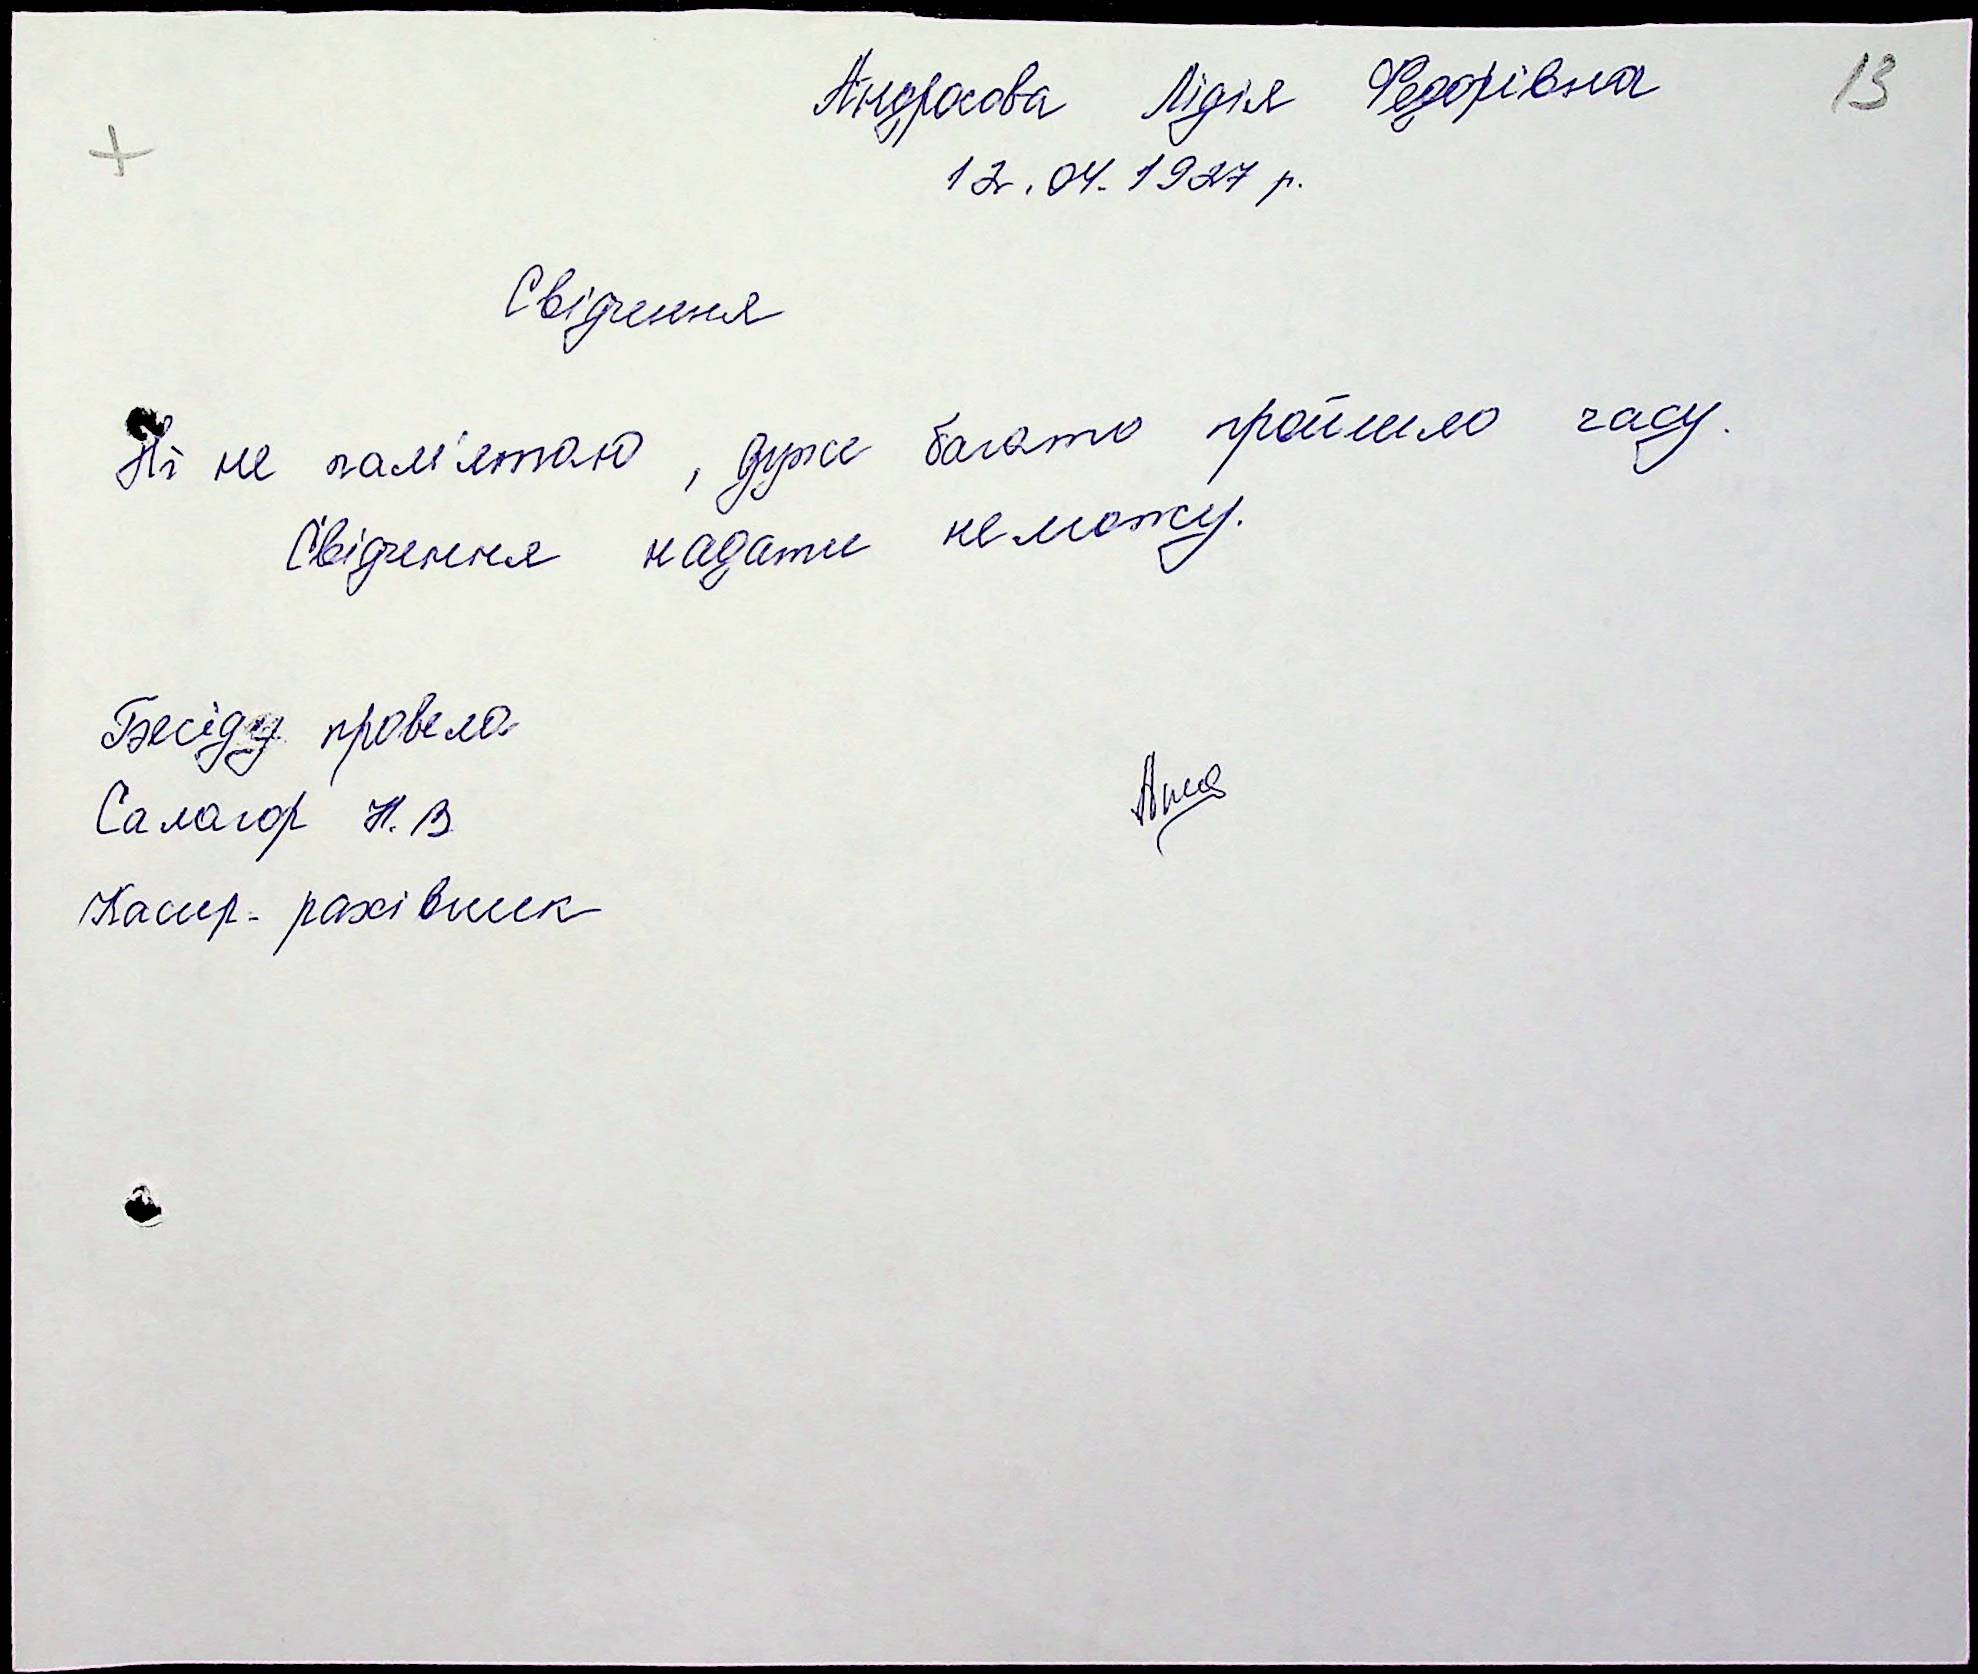 Андросова Лідія Федорівна 13
12.04.1927 р.
Свідчення
Ні не пам'ятаю, дуже багато пройшло часу.
Свідчення надати не можу.
Бесіду провела
Салагор Н.В
Касир-рахівник